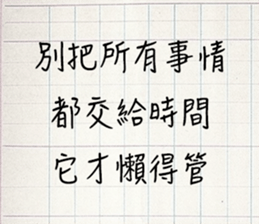 別把所有事情
都交給時間
它才懶得管